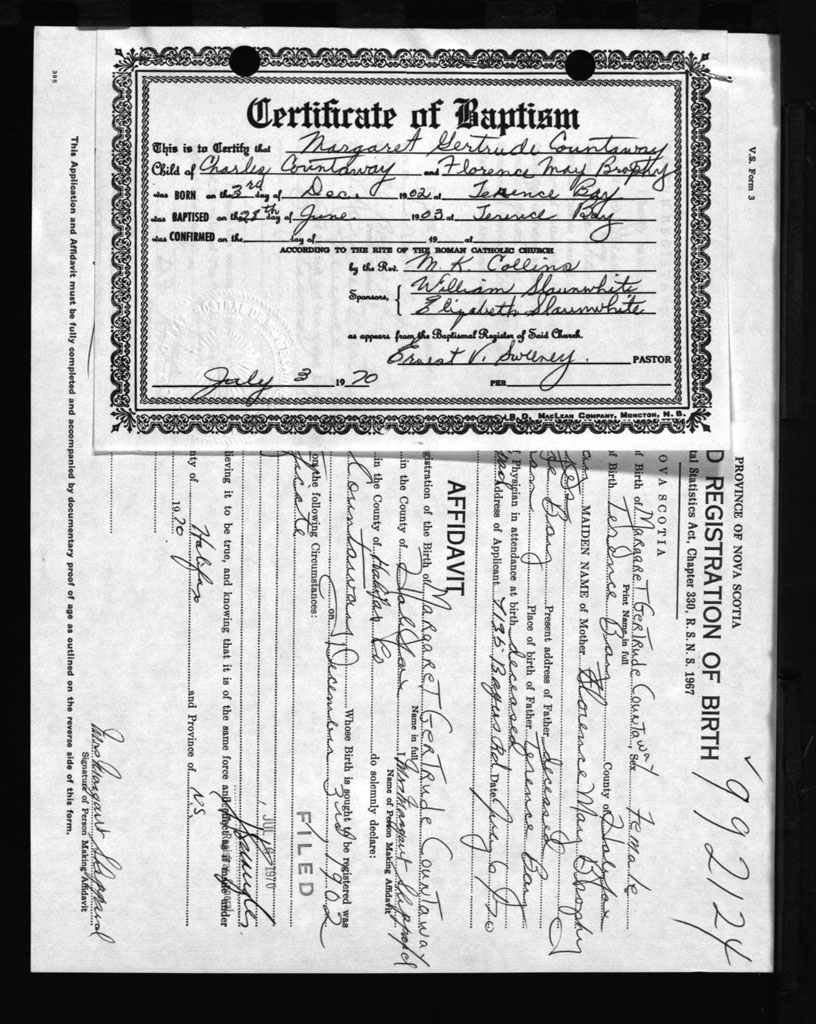 Certificate of Baptism
This is to Certify that Margaret Gertrude Countaway
Child of Charles Countaway and Florence May Brophy
was BORN on the 3rd day of Dec. 1902 at Terence Bay
was BAPTISED on the 28th day of June 1903 at Terence Bay
was CONFIRMED on the day of 19 at
ACCORDING TO THE RITE OF THE ROMAN CATHOLIC CHURCH
by the Rev. M. K. Collins
Sponsors, { William Slaunwhite
Elizabeth Slaunwhite
as appears from the Baptismal Register of Said Church.
Ernest V. Sweeney. PASTOR
July 3 1970 PER
B. D. MacLean Company, Moncton, N. B.
V.S. Form 3
992124
PROVINCE OF NOVA SCOTIA
D REGISTRATION OF BIRTH
tal Statistics Act, Chapter 330, R. S. N. S. 1967
OVA SCOTIA
of Birth of Margaret Gertrude Countaway, Sex Female
Print Name in full
of Birth Terence Bay County of Halifax
MAIDEN NAME of Mother Florence May Brophy
Present address of Father deceased
Place of birth of Father Terence Bay
f Physician in attendance at birth deceased
Address of Applicant 7135 Bayers Rd. Date July 6/70
AFFIDAVIT
gistration of the Birth of Margaret Gertrude Countaway
Name in full
in the County of Halifax Mrs Margaret Sheppard
Name of Person Making Affidavit
in the County of Halifax Co do solemnly declare:
Countaway Whose Birth is sought to be registered was
on December 3rd 1902
on the following Circumstances:
FILED
JUL 1970
lieving it to be true, and knowing that it is of the same force and effect as if made under
nty of Halifax and Province of N.S.
1970
Mrs Margaret Sheppard
Signature of Person Making Affidavit
This Application and Affidavit must be fully completed and accompanied by documentary proof of age as outlined on the reverse side of this form.
385